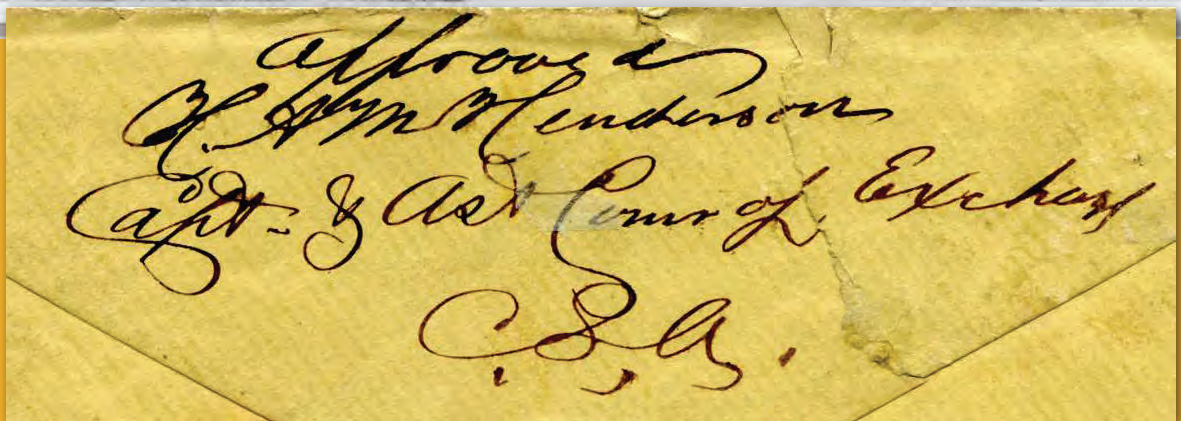 approved
H. A. M. Henderson
Capt. & Ast Comr of Exchang
C. S. A.